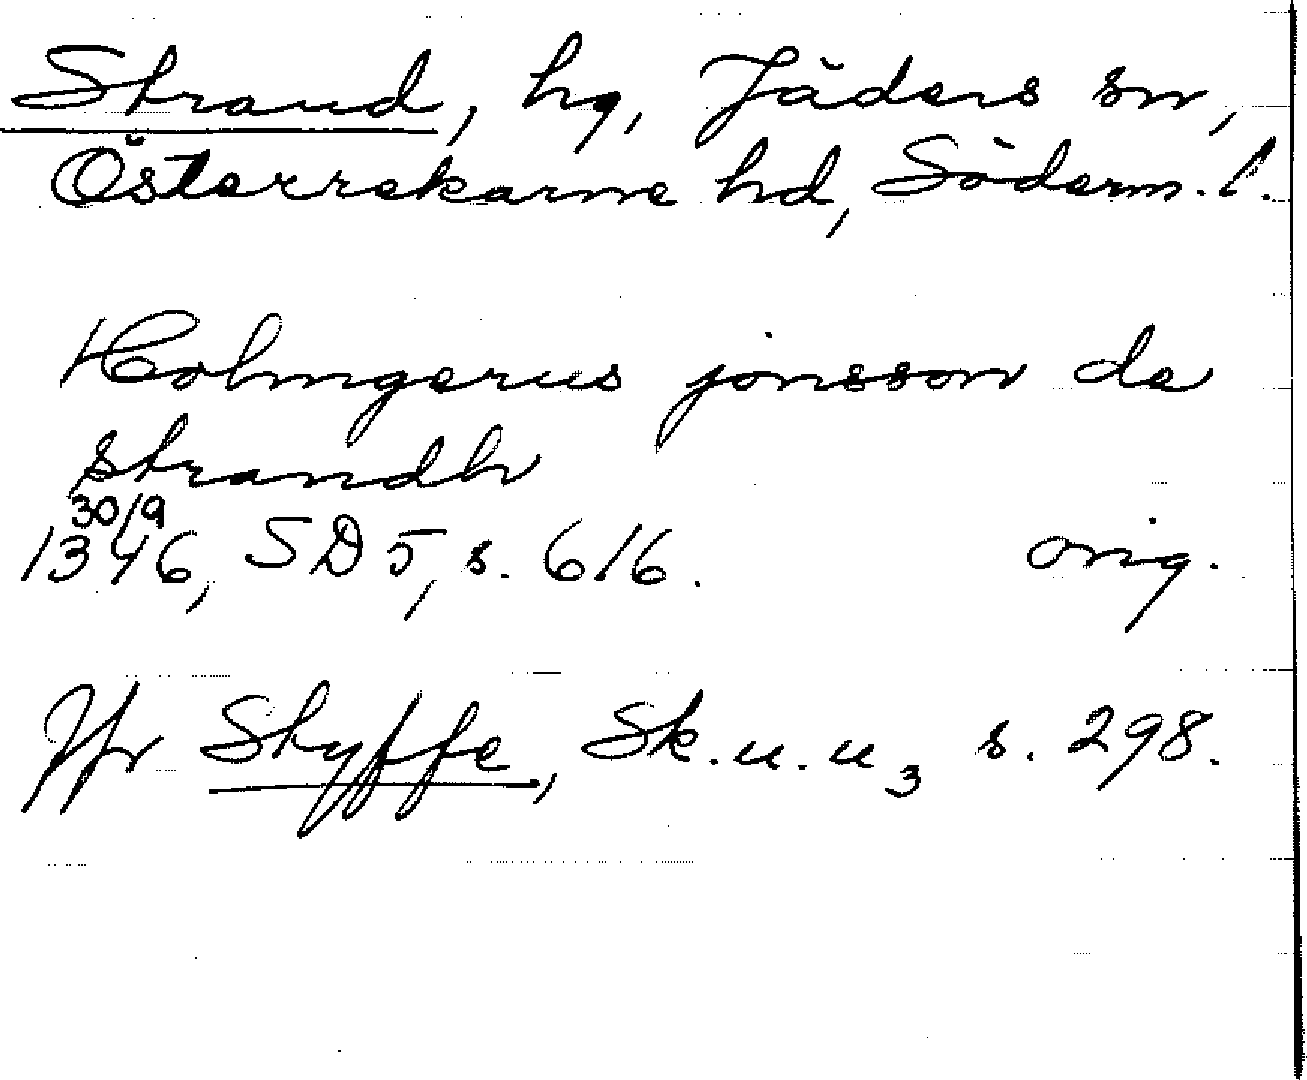 Strand, hg, Jäders sn,
Österrekarne hd, Söderm. l.
Holmgerus jonsson de
strandh
30/9
1346, SD 5, s. 616. orig.
Jfr Styffe, Sk. u. u3 s. 298.